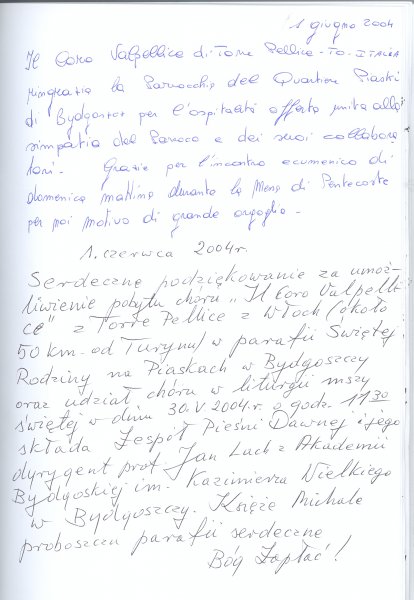 1 giugno 2004
Il Coro Valpellice di Torre Pellice - TO - ITALIA
ringrazia la Parrocchia del Quartiere Piaski
di Bydgoszcz per l'ospitalità offerta unita alla
simpatia del Parroco e dei suoi collabora
tori. Grazie per l'incontro ecumenico di
domenica mattina durante la Messa di Pentecoste
per noi motivo di grande orgoglio -
1. czerwca 2004r.
Serdeczne podziękowanie za umoż-
liwienie pobytu chóru "Il Coro Valpelli
ce" z Torre Pellice z Włoch (około
50 km. od Turynu) w parafii Świętej
Rodziny na Piaskach w Bydgoszczy
oraz udział chóru w liturgii mszy
świętej w dniu 30.V 2004r. o godz. 11 30
składa Zespół Pieśni Dawnej i jego
dyrygent prof. Jan Lach z Akademii
Bydgoskiej im. Kazimierza Wielkiego
w Bydgoszczy. Księże Michale
proboszczu parafii serdeczne
Bóg Zapłać!